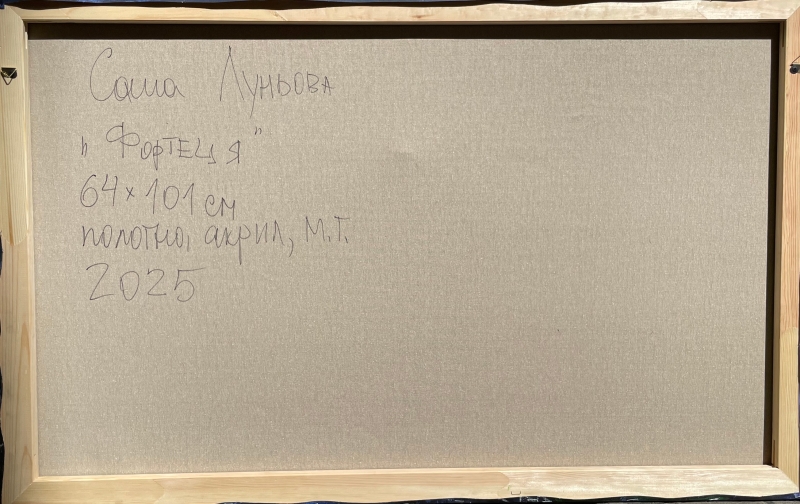 Саша Луньова
„Фортеця"
64×101 см
полотно, акрил, м.т.
2025